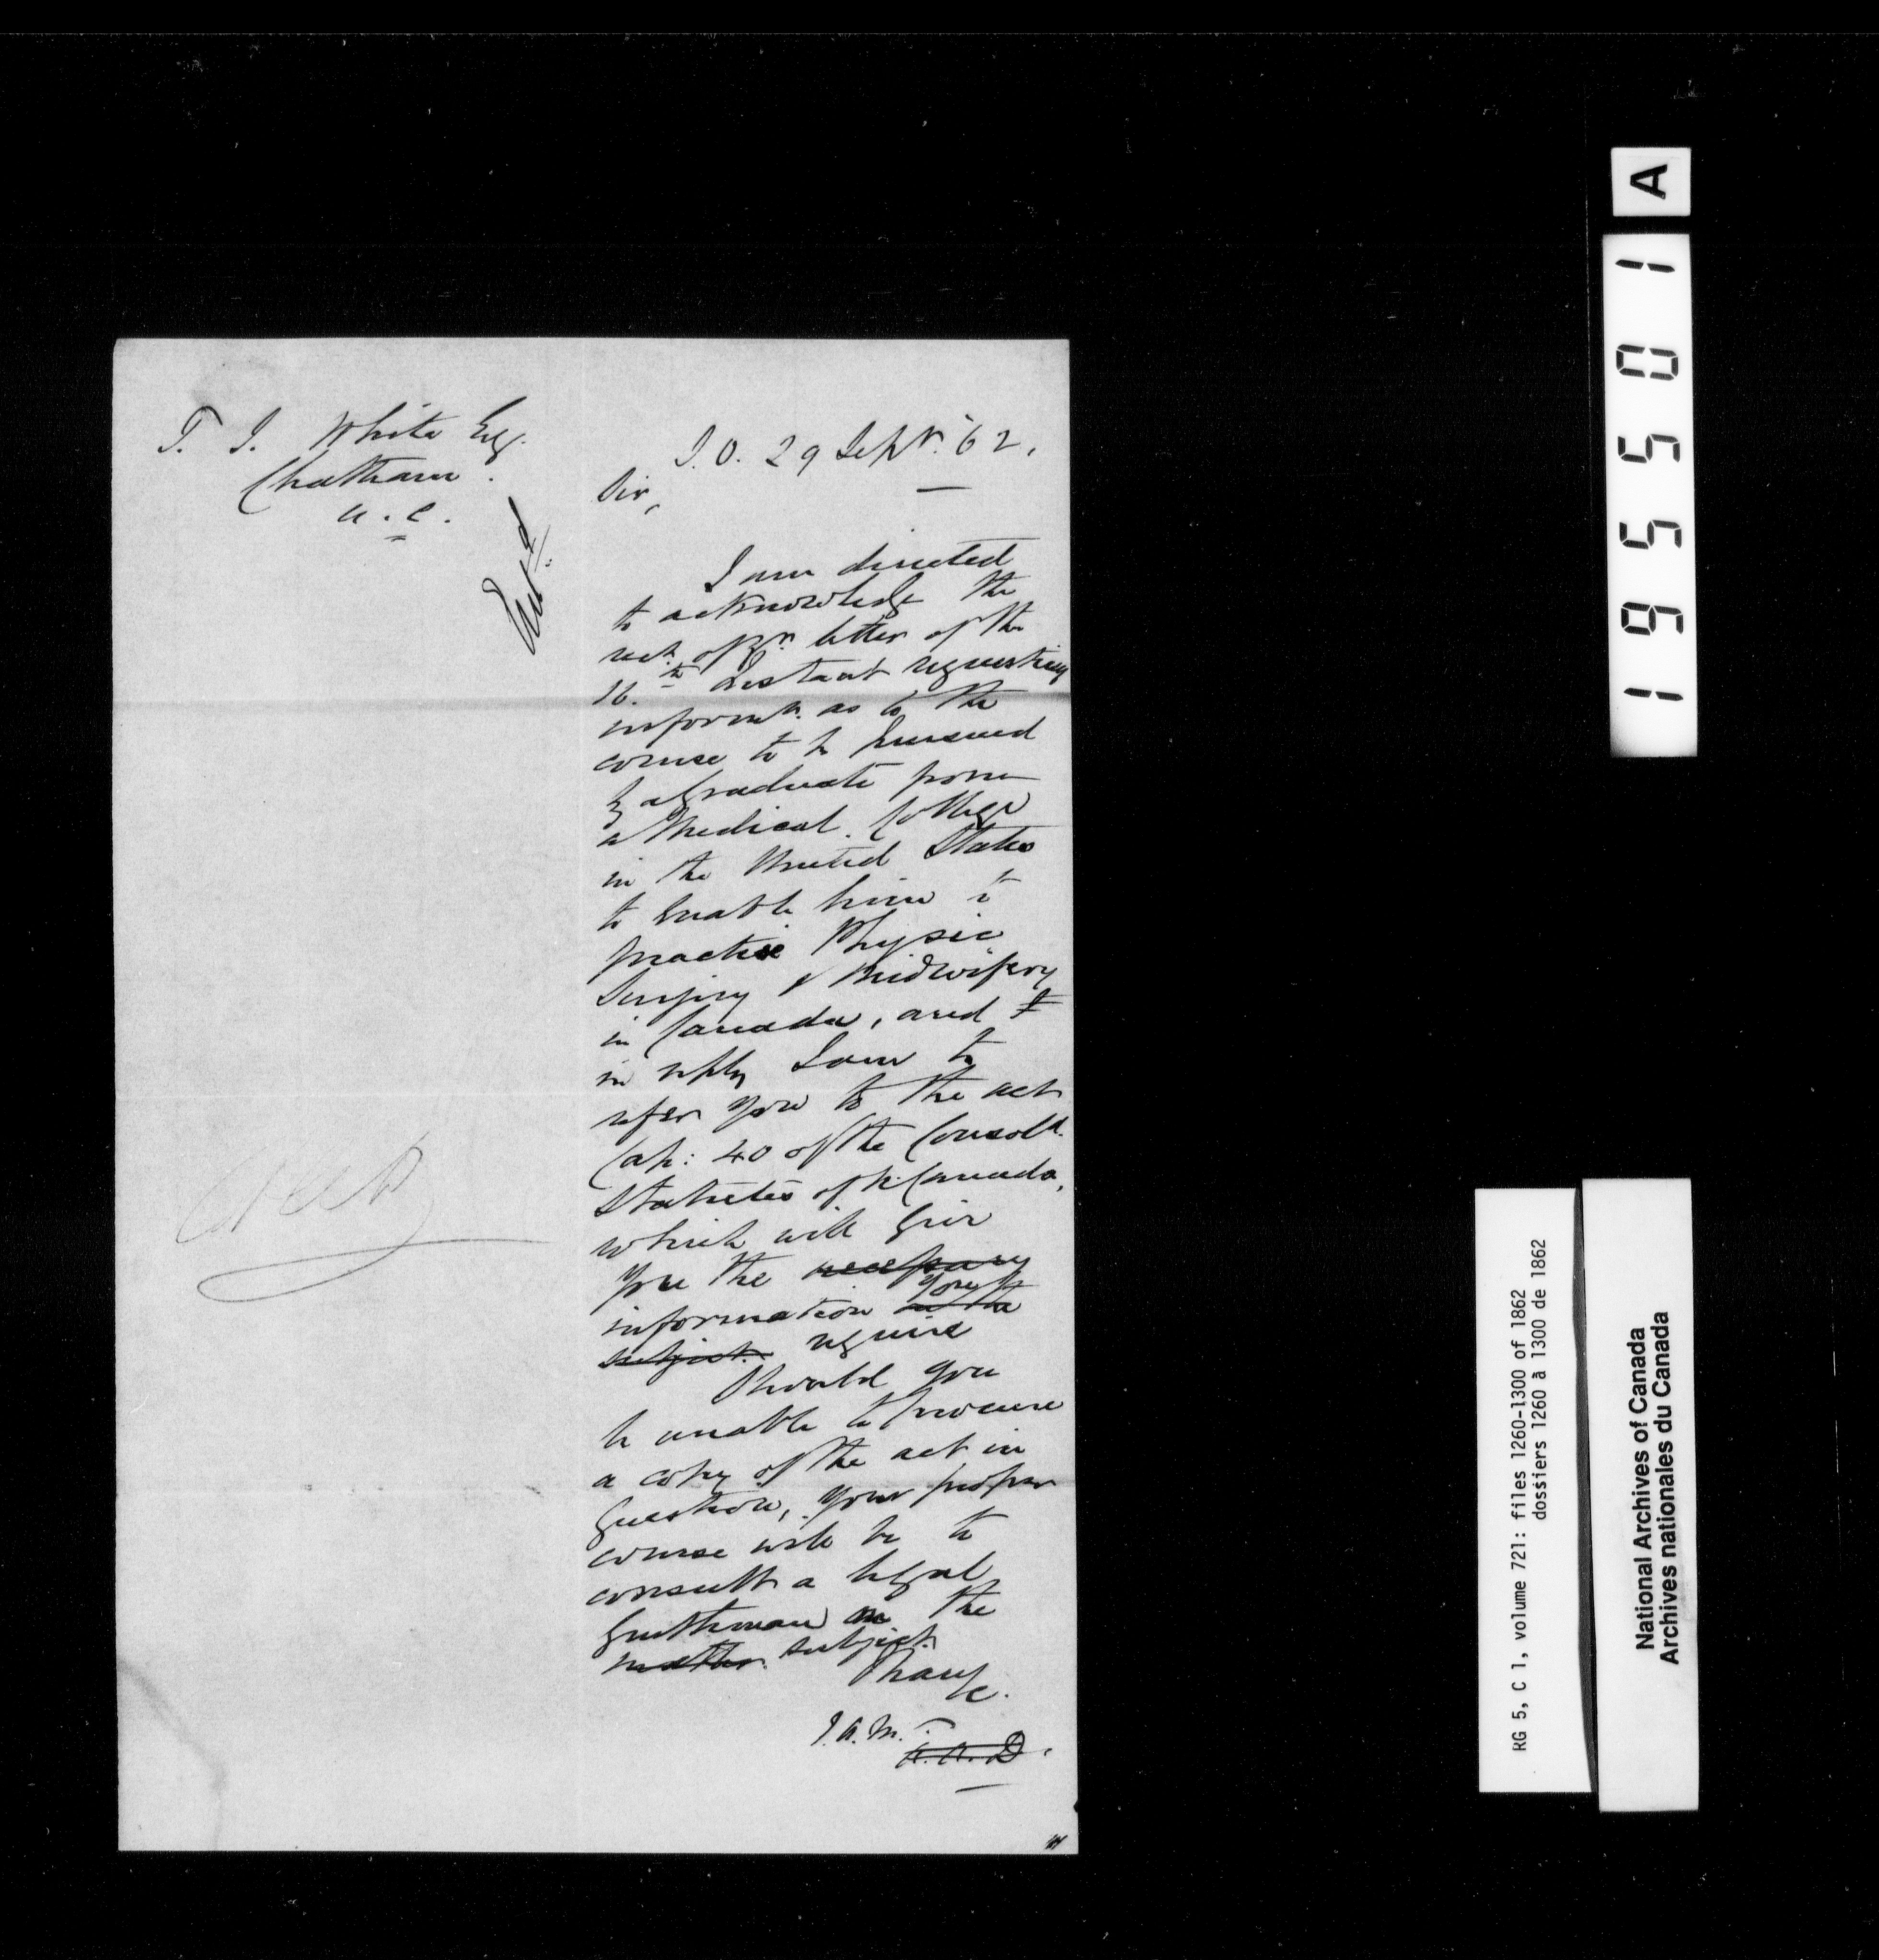 T. J. White Esq.
Chatham.
U. C.
Ent.d
S. O. 29 Septr. '62.
Sir,
I am directed
to acknowledge the
rect. of yr. letter of the
16.th Instant requesting
informatn. as to the
course to be pursued
by a Graduate from
a Medical College
in the United States
to enable him to
practise Physic
Surgery & Midwifery
in Canada, and
in reply I am to
refer you to the act
Cap: 40 of the Consold.
Statutes of U. Canada,
which will give
you the necessary
information you on the
subject. require
Should you
be unable to procure
a copy of the act in
question, your proper
course will be to
consult a legal
gentleman on the
matter. subject.
I have
&c.
A
195501
RG 5, C 1, volume 721: files 1260-1300 of 1862
dossiers 1260 à 1300 de 1862
National Archives of Canada
Archives nationales du Canada